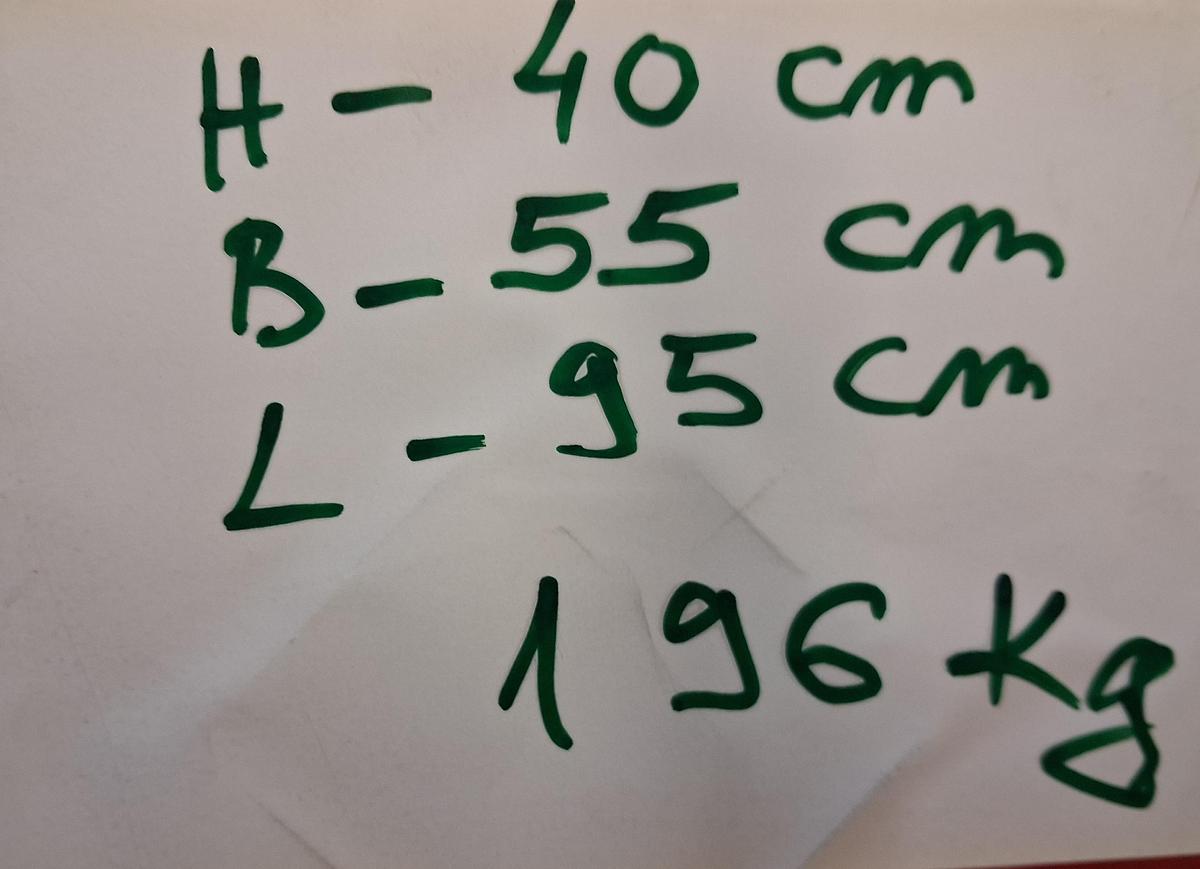 H - 40 cm
B - 55 cm
L - 95 cm
196 Kg